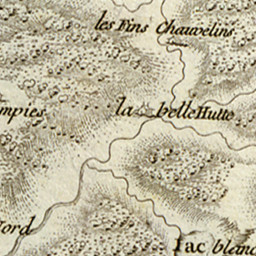 les Fins Chauvelins
mpies
la belle Hutte
ord
Lac blanc